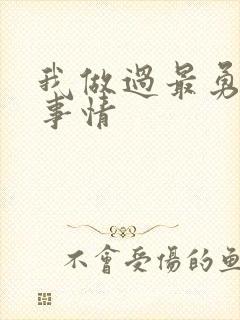 我做過最勇
事情
不會受傷的魚